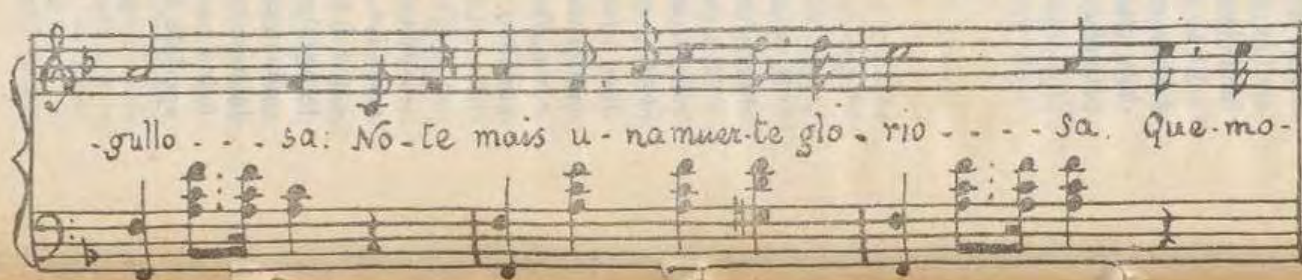 -gullo - - - sa: No-te mais u-namuer-te glo-rio - - - - sa. Que-mo-